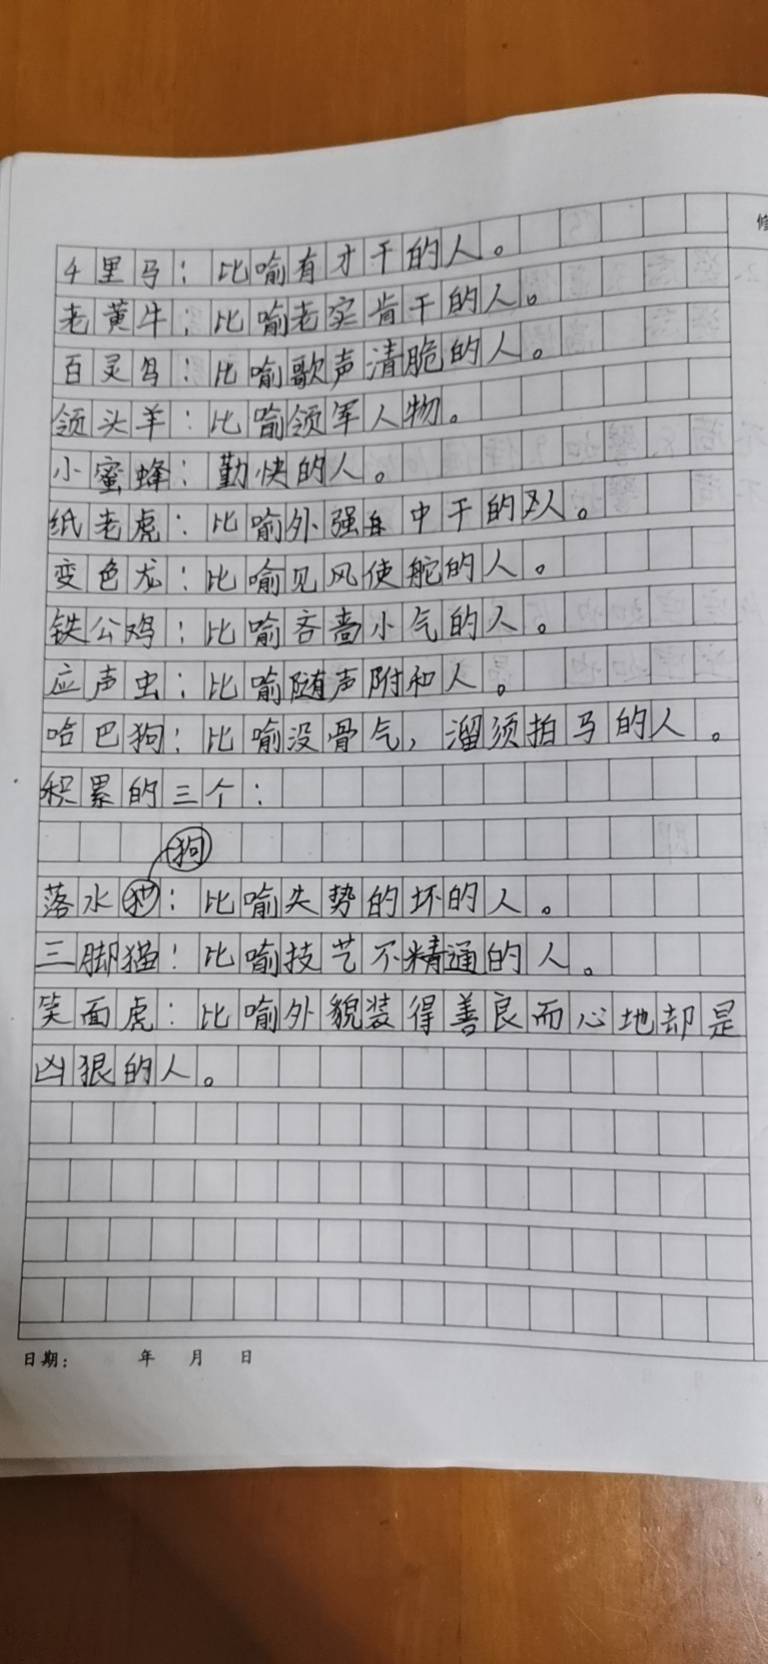 千里马：比喻有才干的人。
老黄牛：比喻老实肯干的人。
百灵鸟：比喻歌声清脆的人。
领头羊：比喻领军人物。
小蜜蜂：勤快的人。
纸老虎：比喻外强 中干的人。
变色龙：比喻见风使舵的人。
铁公鸡：比喻吝啬小气的人。
应声虫：比喻随声附和人。
哈巴狗：比喻没骨气，溜须拍马的人。
积累的三个：
狗
落水猫：比喻失势的坏的人。
三脚猫：比喻技艺不精通的人。
笑面虎：比喻外貌装得善良而心地却是
凶狠的人。
日期： 年 月 日